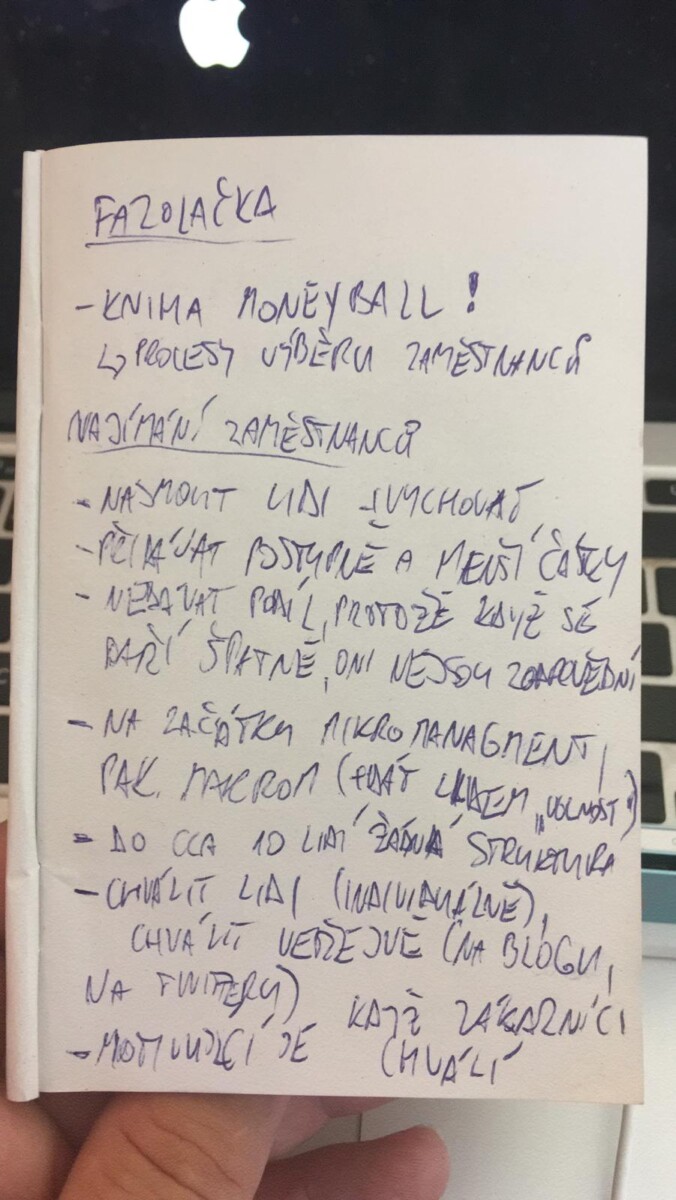 FAZOLAČKA
- KNIHA MONEYBALL!
↳ PROCESY VÝBĚRU ZAMĚSTNANCŮ
NAJÍMÁNÍ ZAMĚSTNANCŮ
- NAJMOUT LIDI + VYCHOVAT
- PŘIDÁVAT POSTUPNĚ A MENŠÍ ČÁSTKY
- NEDÁVAT PODÍL, PROTOŽE KDYŽ SE
DAŘÍ ŠPATNĚ, ONI NEJSOU ZODPOVĚDNÍ
- NA ZAČÁTKU MIKROMANAGMENT,
PAK MAKROM ( LIDEM „VOLNOST")
- DO CCA 10 LIDÍ ŽÁDNÁ STRUKTURA
- CHVÁLIT LIDI (INDIVIDUÁLNĚ),
CHVÁLIT VEŘEJNĚ (NA BLOGU,
NA TWITTERU)
- MOTIVUJÍCÍ JE KDYŽ ZÁKAZNÍCI
CHVÁLÍ